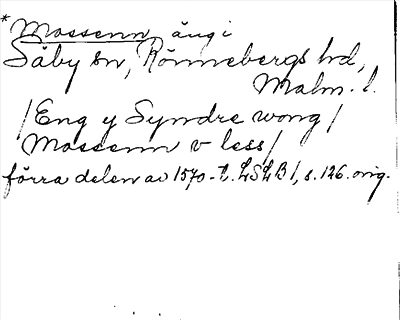 *Mossenn, äng i
Säby sn, Rönnebergs hd,
Malm. l.
/Eng y Syndre wong/
Mossenn v less/
förra delen av 1570-t. LSLB1, s. 126. orig.